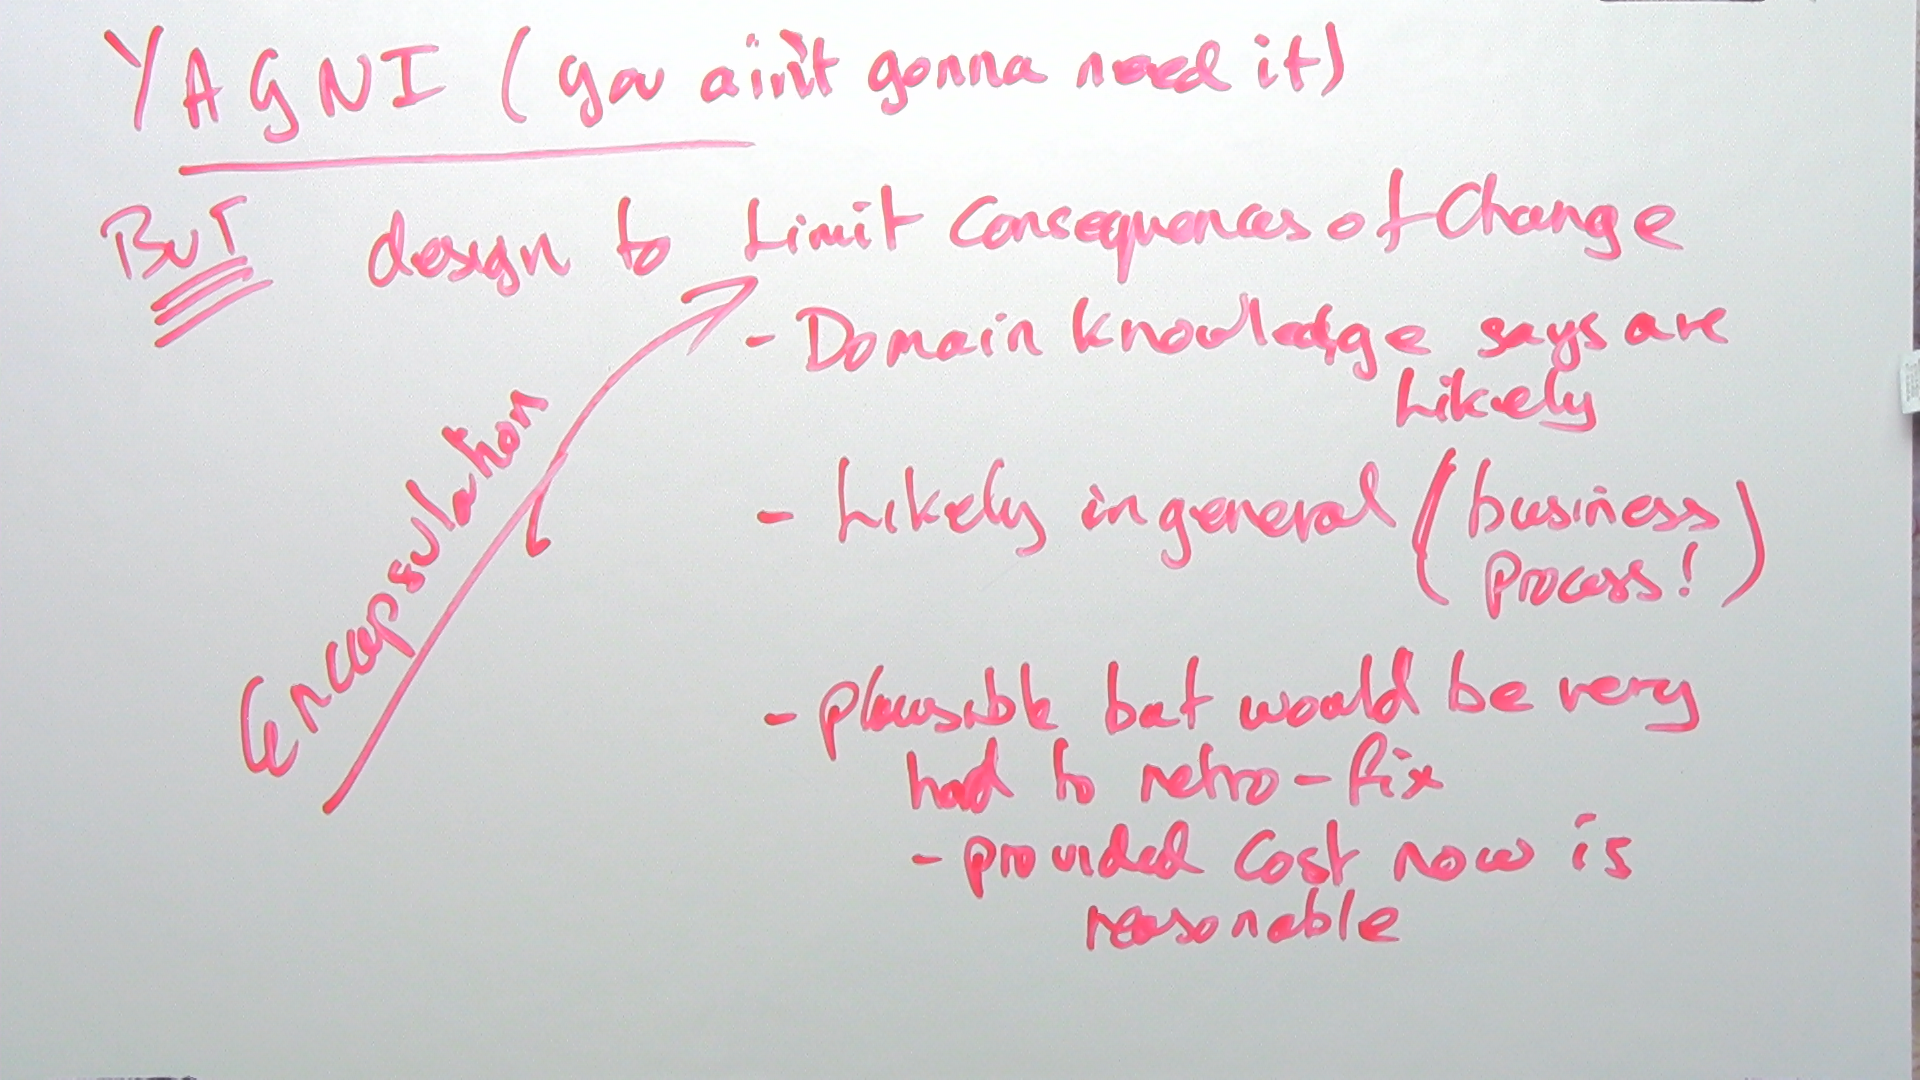 YAGNI (you ain't gonna need it)
BUT design to Limit Consequences of Change
- Domain knowledge says are
Likely
- Likely in general (business
process!)
- plausible but would be very
hard to retro-fix
- provided cost now is
reasonable
Encapsulation